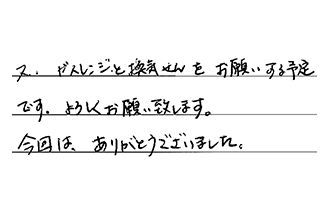 又、ガスレンジと換気せんをお願いする予定
です。よろしくお願い致します。
今回は、ありがとうございました。